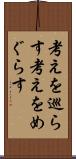 考えを巡ら
す考えをめ
ぐらす